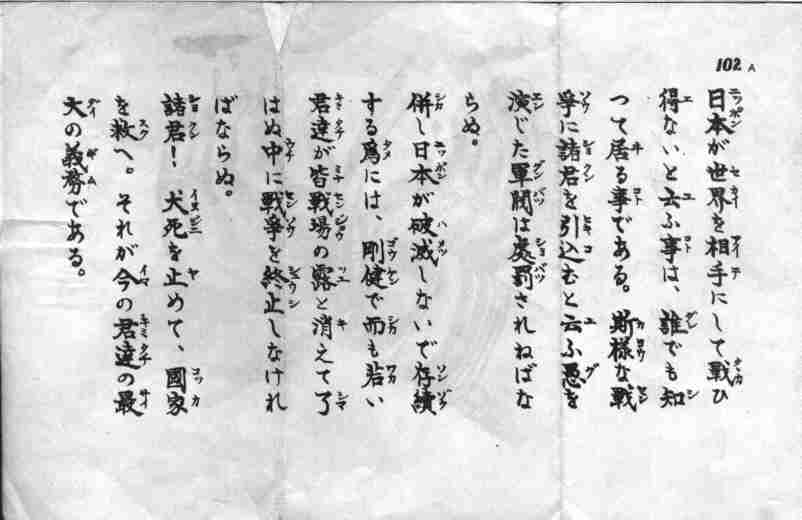 102 A
日本が世界を相手にして戰ひ
得ないと云ふ事は、誰でも知
つて居る事である。斯様な戰
爭に諸君を引込むと云ふ愚を
演じた軍閥は處罰されねばな
らぬ。
併し日本が破滅しないで存續
する爲には、剛健で而も若い
君達が皆戰場の露と消えて了
はぬ中に戰爭を終止しなけれ
ばならぬ。
諸君！犬死を止めて、國家
を救へ。それが今の君達の最
大の義務である。